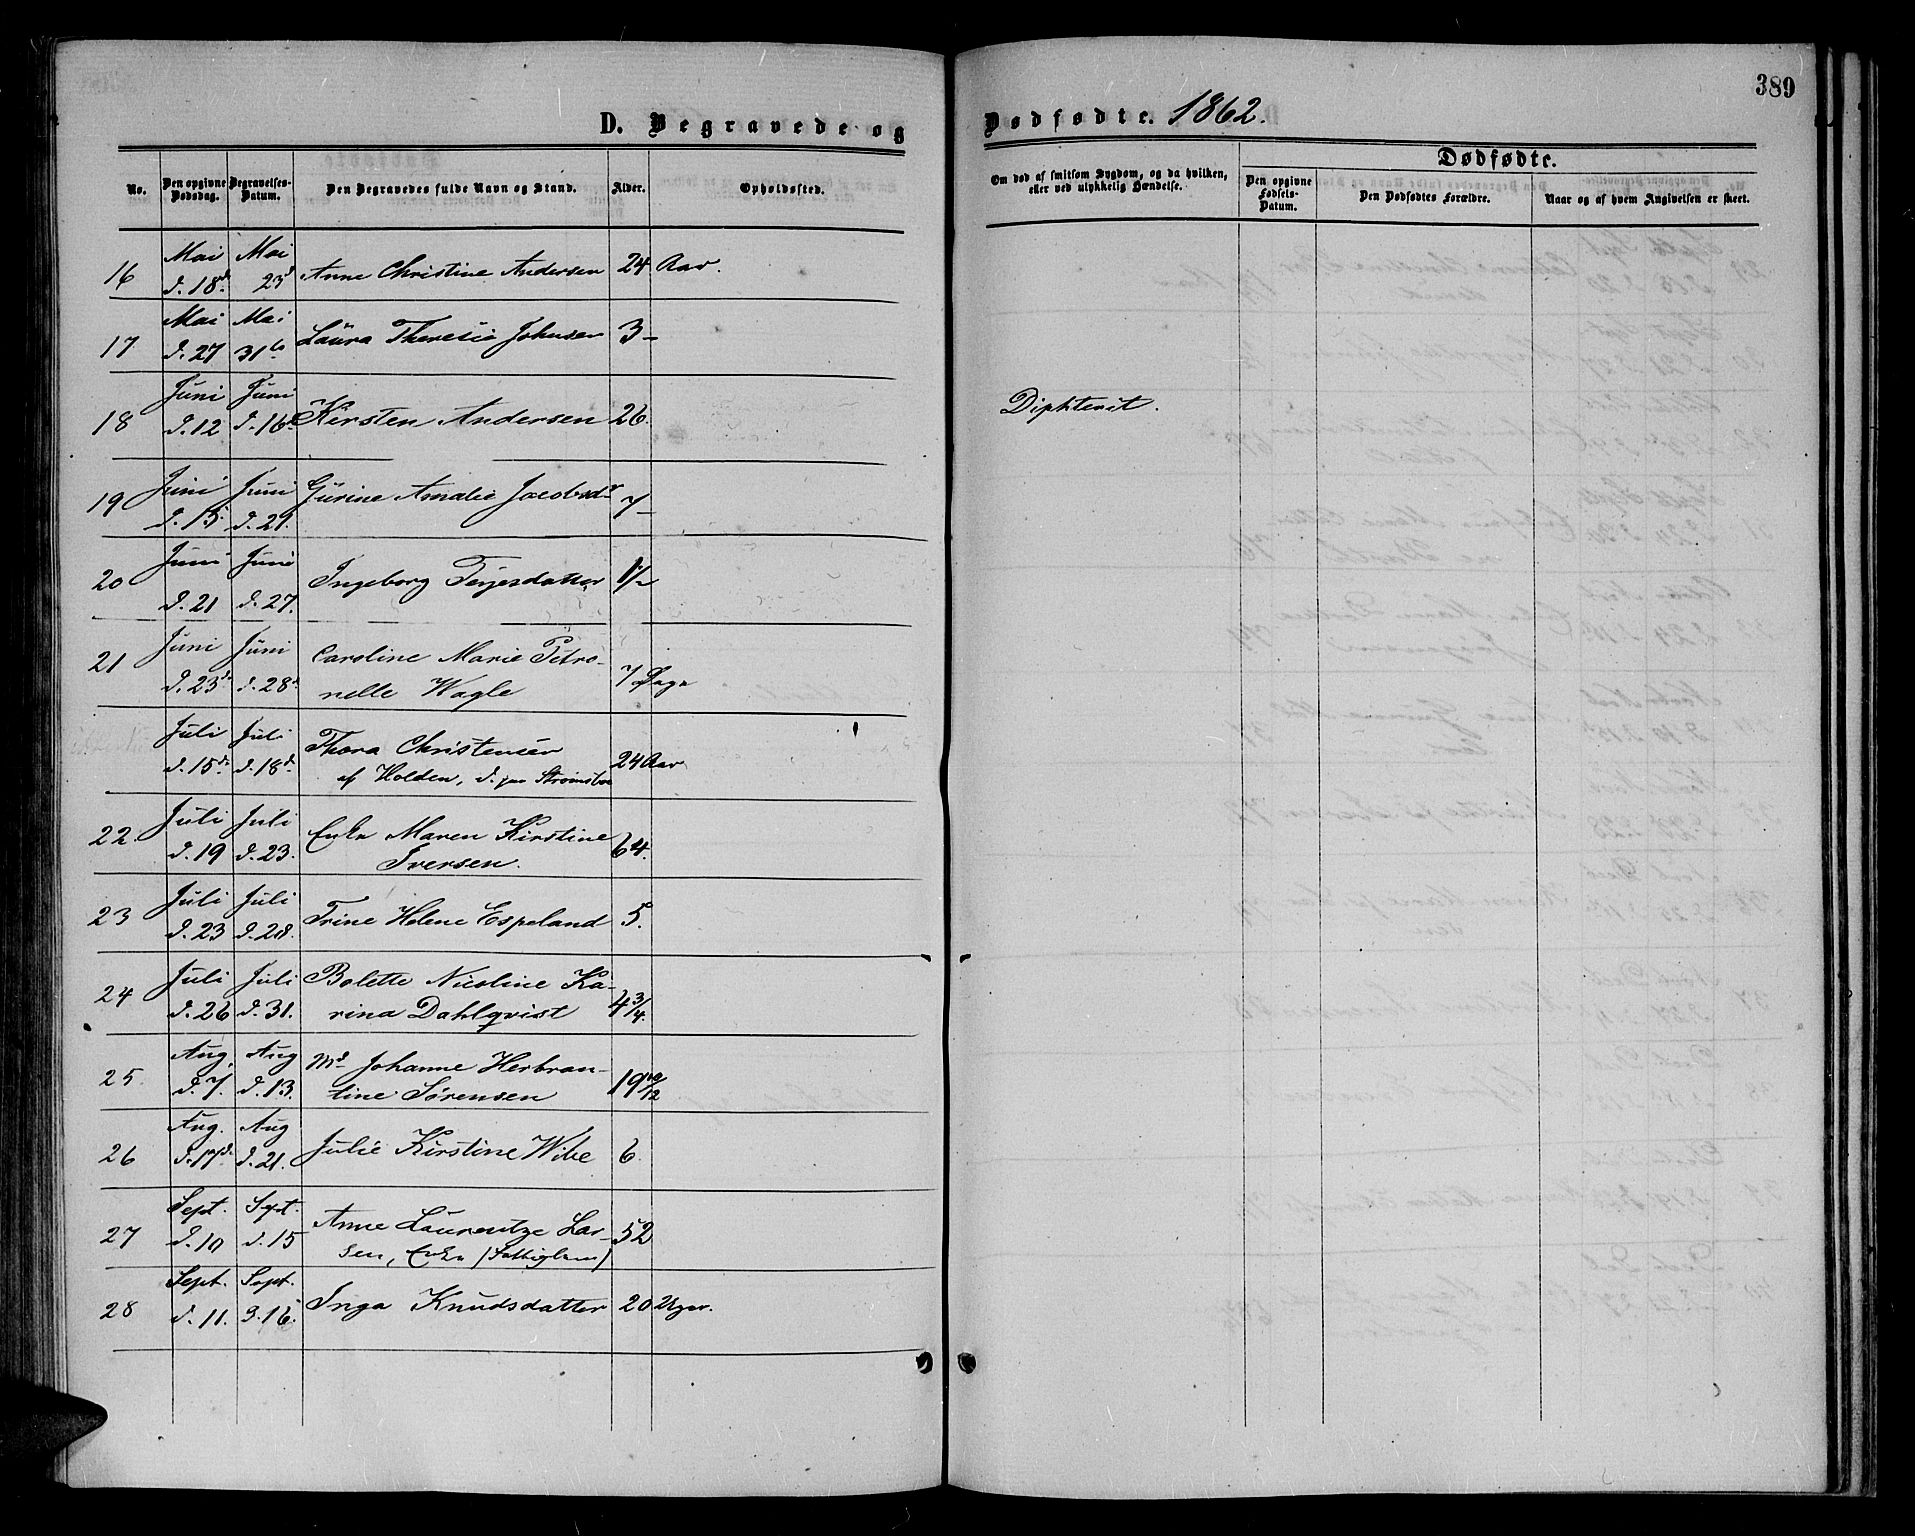 389
D. Begravede og Dødfødte. 1862.
No.
Den opgivne Dødsdag.
Begravelses-Datum.
Den Begravedes fulde Navn og Stand.
Alder.
Opholdssted.
Om død af smitsom Sygdom, og da hvilken, eller ved ulykkelig Hændelse.
Dødfødte.
Den opgivne Fødsels-Datum.
Den Dødfødtes Forældre.
Naar og af hvem Angivelsen er skeet.
16 Mai d. 18d. Mai 23d Anne Christine Andersen 24 Aar.
17 Mai d. 27 Mai 31te Laura Theresie Johnsen 3 –
18 Juni d. 12 Juni d. 16. Kirsten Andersen 26. Diphterit.
19 Juni d. 15. Juni d. 21. Gurine Amalie Jacobsdr 7 –
20 Juni d. 21 Juni d. 27. Ingeborg Terjesdatter
21 Juni d. 23d. Juni d. 28d Caroline Marie Petro-
nelle Wagle 7 Dage
Juli d. 15d. Juli d. 18d. Thora Christensen
af Holden, d. paa Strømsboe 24 Aar
22. Juli d. 19 Juli d. 23. Enke Maren Kirstine
Iversen. 64.
23 Juli d. 23 Juli d. 28. Trine Helene Espeland 5.
24 Juli d. 26 Juli d. 31. Bolette Nicoline Ka-
rina Dahlqvist 4 3/4.
25. Aug. d. 7. Aug d. 13. Md Johanne Herbran-
tine Sørensen 19 10/12
26 Aug. d. 17d. Aug d. 21. Julie Kirstine Wibe 6.
27 Sept. d. 10 Sept. d. 15 Anne Laurentze Lar-
sen, Enke (Fattiglem) 52
28 Sept. d. 11. Sept. d. 16. Inga Knudsdatter 20 Uger.